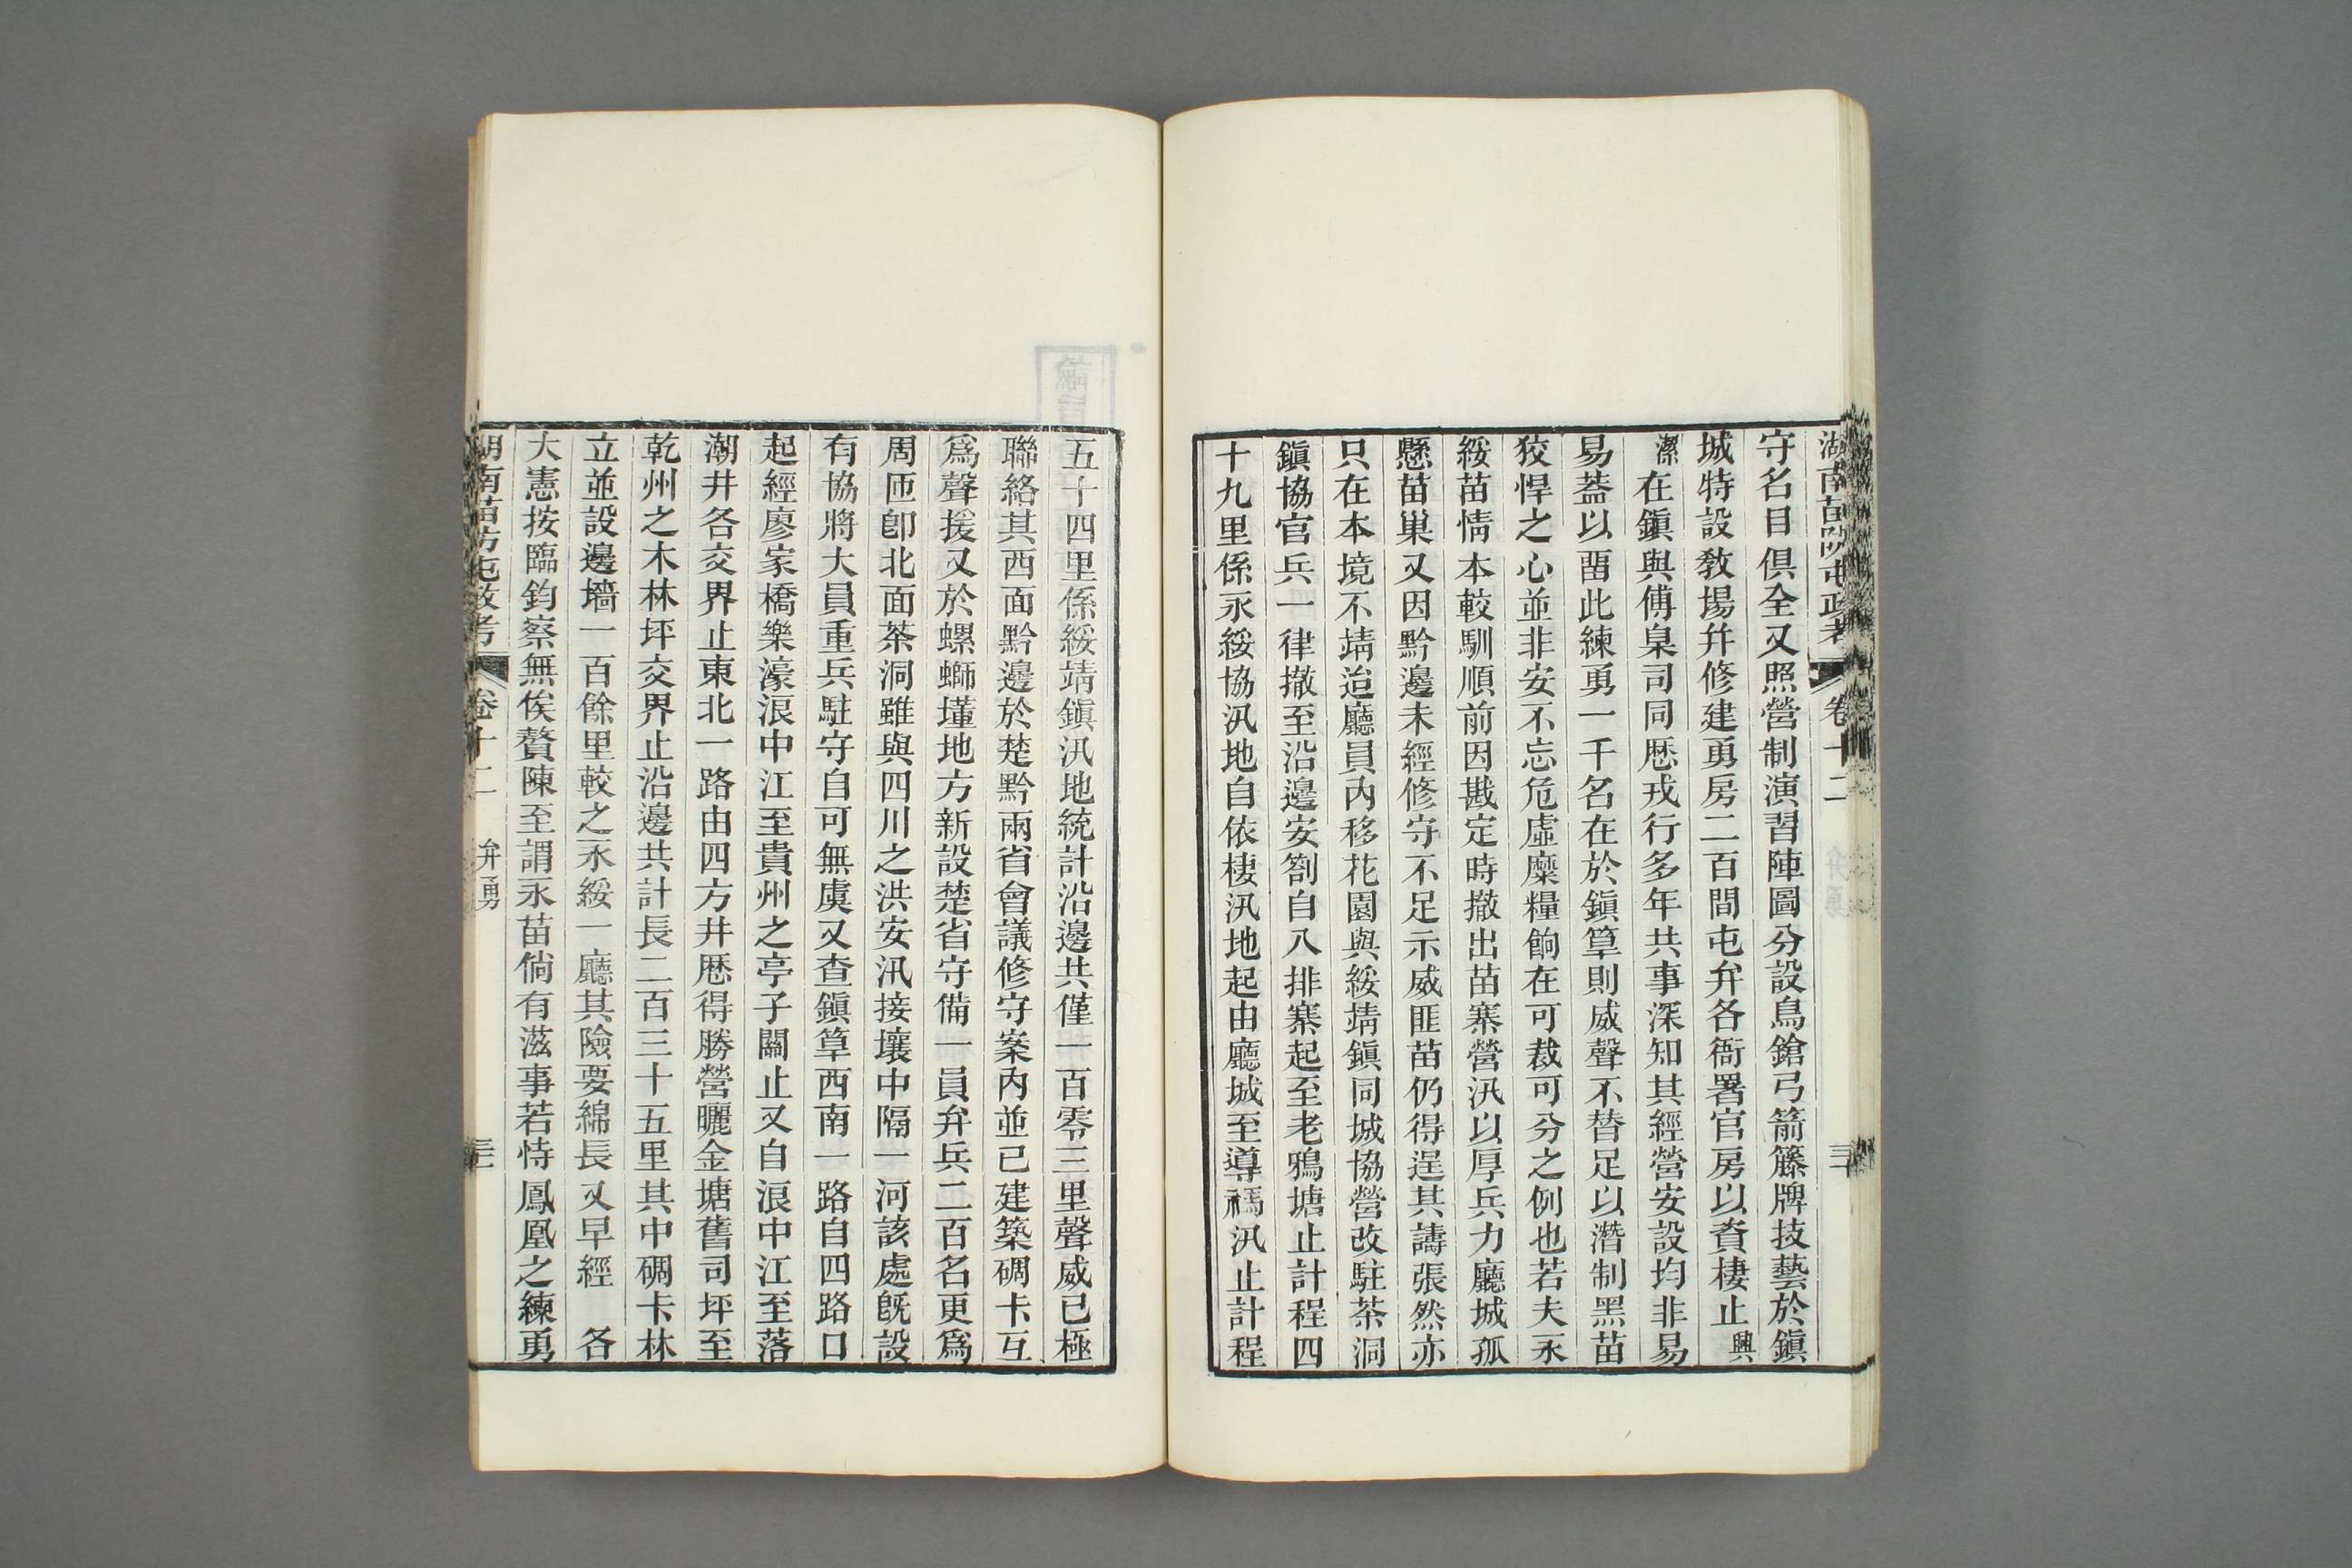 湖南苗防屯政考 卷十二
守名目俱全又照營制演習陣圖分設鳥鎗弓箭籐牌技藝於鎭
城特設教場幷修建勇房二百間屯弁各衙署官房以資棲止興
潔在鎭與傅臬司同歷戎行多年共事深知其經營安設均非易
易葢以畱此練勇一千名在於鎭筸則威聲不替足以潛制黑苗
狡悍之心並非安不忘危虛糜糧餉在可裁可分之例也若夫永
綏苗情本較馴順前因戡定時撤出苗寨營汛以厚兵力廳城孤
懸苗巢又因黔邊未經修守不足示威匪苗仍得逞其譸張然亦
只在本境不靖迨廳員內移花園與綏靖鎭同城協營改駐茶洞
鎭協官兵一律撤至沿邊安劄自八排寨起至老鴉塘止計程四
十九里係永綏協汛地自依棲汛地起由廳城至導禡汛止計程
五十四里係綏靖鎭汛地統計沿邊共僅一百零三里聲威已極
聯絡其西面黔邊於楚黔兩省會議修守案內並已建築碉卡互
爲聲援又於螺螄墐地方新設楚省守備一員弁兵二百名更爲
周匝卽北面茶洞雖與四川之洪安汛接壤中隔一河該處旣設
有協將大員重兵駐守自可無虞又查鎭筸西南一路自四路口
起經廖家橋樂濠浪中江至貴州之亭子關止又自浪中江至落
潮井各交界止東北一路由四方井歷得勝營曬金塘舊司坪至
乾州之木林坪交界止沿邊共計長二百三十五里其中碉卡林
立並設邊墻一百餘里較之永綏一廳其險要綿長又早經　各
大憲按臨鈞察無俟贅陳至謂永苗倘有滋事若恃鳳凰之練勇
湖南苗防屯政考 卷十二 弁勇